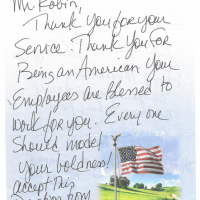 Mr Robin,
Thank You for your
Service. Thank You For
Being an American. Your
Employees are Blessed to
work for you. Every one
Should model
your boldness!
accept This
from